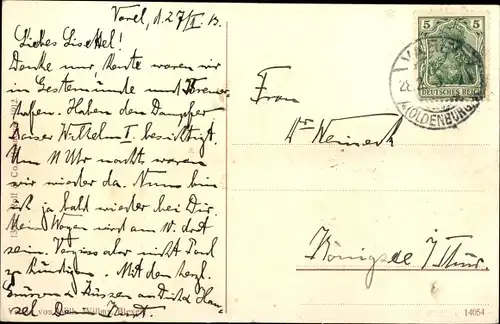 Varel, d. 27/I. 13.
Liebes Liesel!
Danke nur, heute waren wir
in Geestemünde und Bremer-
hafen. Haben den Dampfer
Kaiser Wilhelm I. besichtigt.
Um 11 Uhr nachts waren
wir wieder da. Nun bin
ich ja bald wieder bei Dir.
Mein Wagen wird am 10. dort
sein. Vergiss aber nicht
zu kündigen. Mit den herzl.
Grüssen & Küssen an Dich
Dein
Frau
Dr Weineck
Königsee i/Thür.
5 5
DEUTSCHES REICH
VAREL
(OLDENBURG)
14054